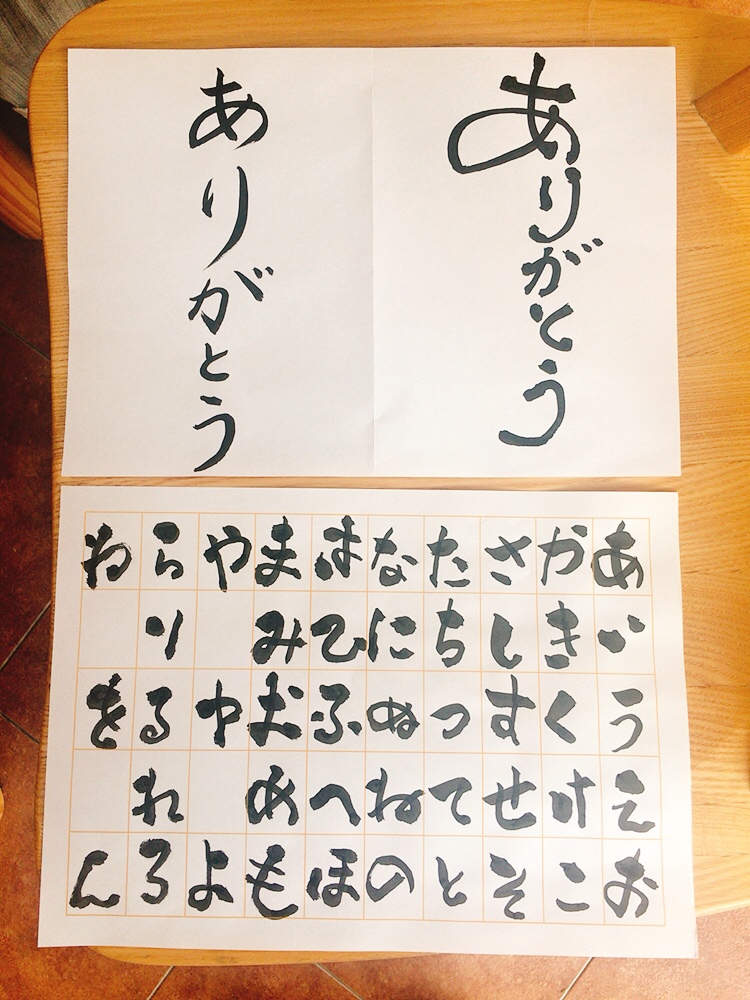 ありがとう
ありがとう
あいうえお
かきくけこ
さしすせそ
たちつてと
なにぬねの
はひふへほ
まみむめも
やゆよ
らりるれろ
わをん